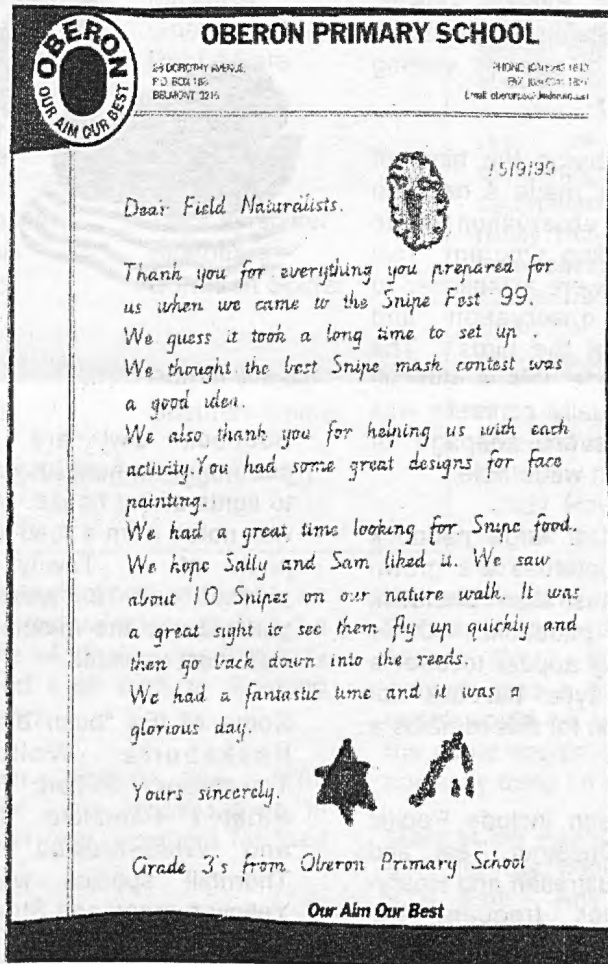 OBERON PRIMARY SCHOOL
OBERON
OUR AIM OUR BEST
DOROTHY AVENUE,
P.O. BOX
BELMONT 3216
PHONE
FAX
Email:
15/9/99
Dear Field Naturalists.
Thank you for everything you prepared for
us when we came to the Snipe Fest 99.
We guess it took a long time to set up
We thought the best Snipe mask contest was
a good idea.
We also thank you for helping us with each
activity. You had some great designs for face
painting.
We had a great time looking for Snipe food.
We hope Sally and Sam liked it. We saw
about 10 Snipes on our nature walk. It was
a great sight to see them fly up quickly and
then go back down into the reeds.
We had a fantastic time and it was a
glorious day.
Yours sincerely.
Grade 3's from Oberon Primary School
Our Aim Our Best